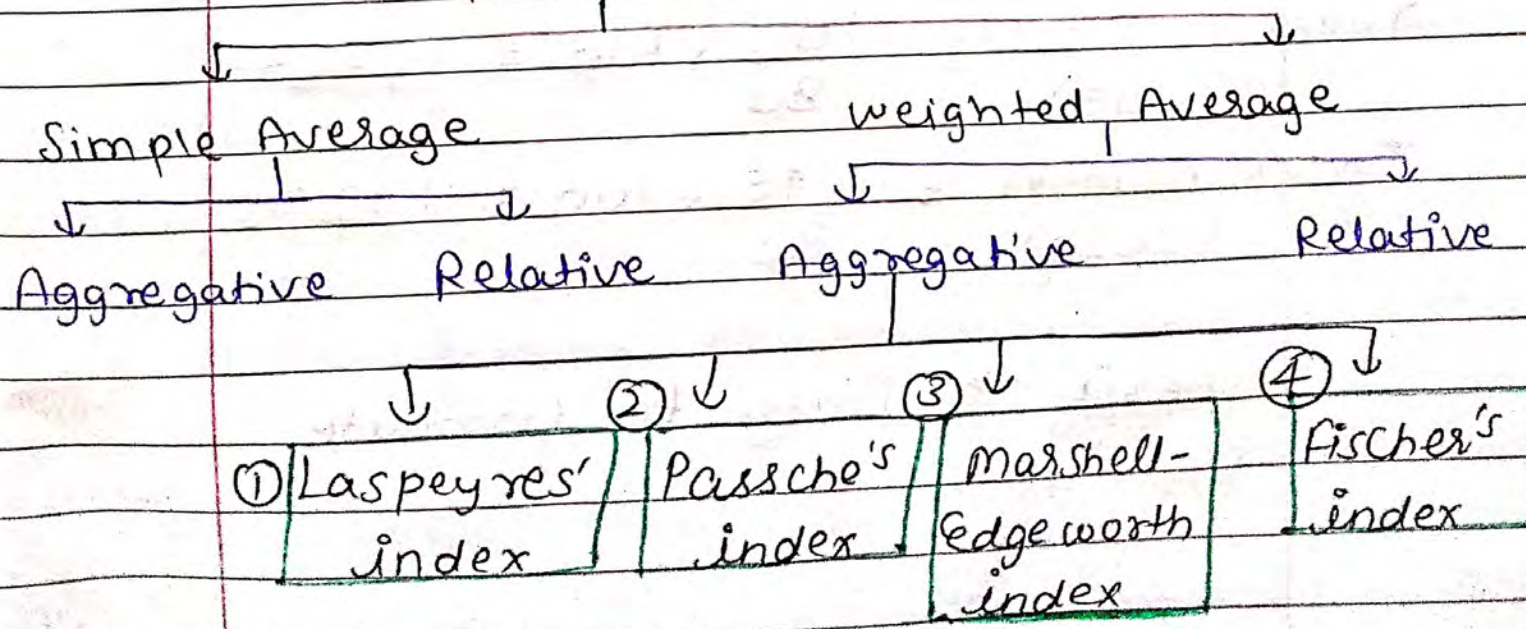 Simple Average
weighted Average
Aggregative
Relative
Aggregative
Relative
① Laspeyres'
index
② Passche's
index
③ Marshell-
Edgeworth
index
④ Fischer's
index